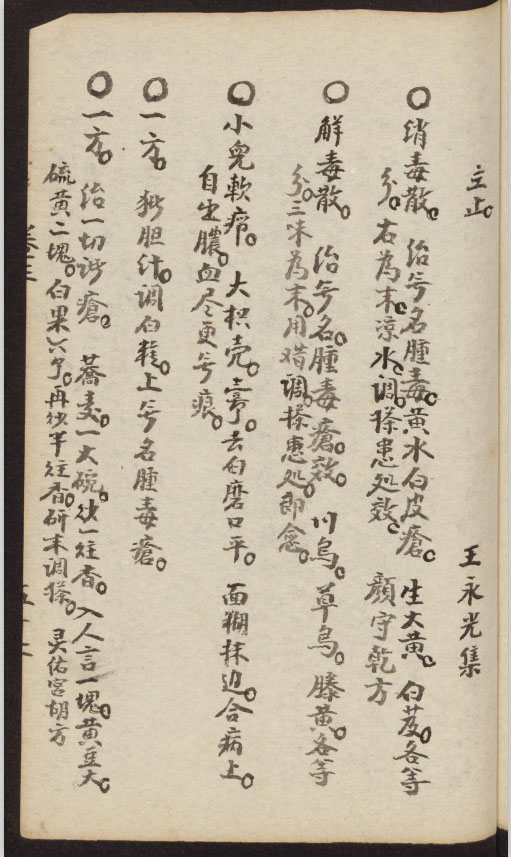 立止。 王永光集
○消毒散。 治号名腫毒。黄水白皮瘡。 生大黄。 白芨。各等
分。右為末。凉水調搽患处效。 顔守乾方
○解毒散。 治号名。腫毒瘡。效。 川烏。草烏。 滕黄。各等
分。三味為末。用醋調。搽患处。即愈。
○小兒軟疖。 大枳壳。壹个。去白磨口平。 面糊抹边。合病上。
自出膿。血尽更号痕。
○一方。 猪胆汁。調白麪。上号名腫毒瘡。
○一方。 治一切諸瘡。 蕎麦。一大碗。炒一炷香。 入人言一塊。黄豆大。
硫黄二塊。白果六个。再炒半炷香。研末調搽。 灵佑宮胡方
卷三
五十二